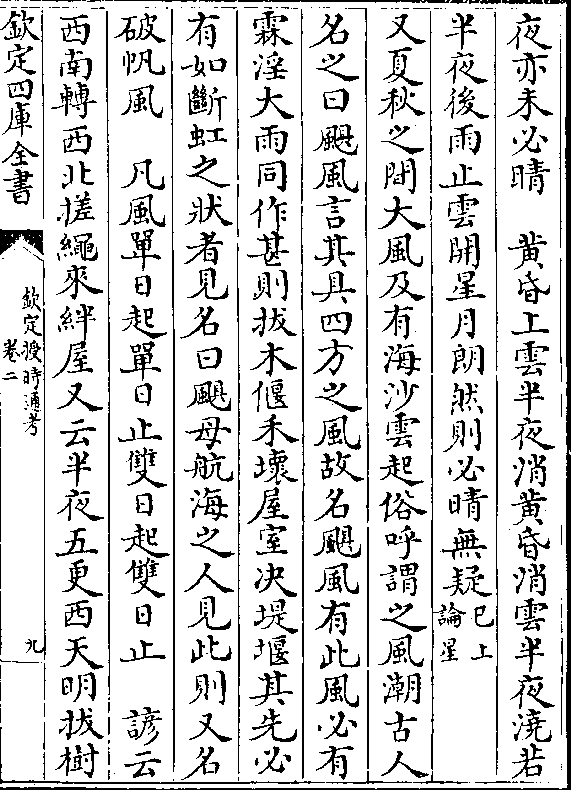 夜亦未必晴　黄昏上雲半夜消黄昏消雲半夜澆若
半夜後雨止雲開星月朗然則必晴無疑已上論星
又夏秋之間大風及有海沙雲起俗呼謂之風潮古人
名之曰颶風言其具四方之風故名颶風有此風必有
霖淫大雨同作甚則拔木偃禾壞屋室決堤堰其先必
有如斷虹之狀者見名曰颶母航海之人見此則又名
破帆風　凡風單日起單日止雙日起雙日止　諺云
西南轉西北搓繩來絆屋又云半夜五更西天明拔樹
欽定四庫全書
欽定授時通考
卷二
九